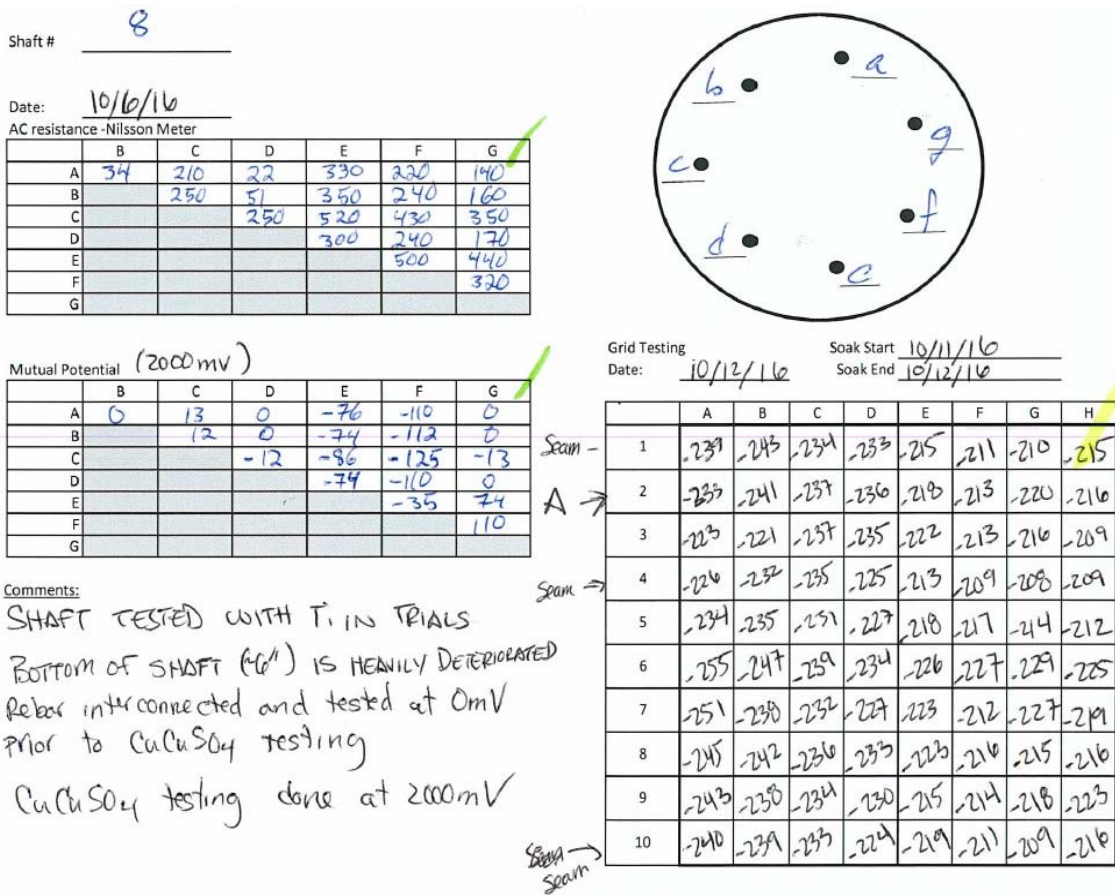 Shaft # 8
Date: 10/6/16
AC resistance -Nilsson Meter
B C D E F G
A 34 210 22 330 220 140
B 250 51 350 240 160
C 250 520 430 350
D 300 240 170
E 500 440
F 320
G
Mutual Potential (2000mv)
B C D E F G
A 0 13 0 -76 -110 0
B 12 0 -74 -112 0
C -12 -86 -125 -13
D -74 -110 0
E -35 74
F 110
G
Comments:
SHAFT TESTED WITH Ti IN TRIALS
BOTTOM OF SHAFT (~6") IS HEAVILY DETERIORATED
Rebar interconnected and tested at 0mV
Prior to CuCuSO4 testing
CuCuSO4 testing done at 2000mV
a
b
g
c
f
d
e
Grid Testing
Date: 10/12/16
Soak Start 10/11/16
Soak End 10/12/16
A B C D E F G H
Seam - 1 -239 -243 -234 -233 -215 -211 -210 -215
A → 2 -233 -241 -237 -236 -218 -213 -220 -216
3 -223 -221 -237 -235 -222 -213 -216 -209
Seam → 4 -226 -232 -235 -225 -213 -209 -208 -209
5 -234 -235 -251 -227 -218 -217 -214 -212
6 -255 -247 -239 -234 -226 -227 -229 -225
7 -251 -238 -232 -227 -223 -212 -227 -219
8 -245 -242 -236 -233 -223 -216 -215 -216
9 -243 -238 -234 -230 -215 -214 -218 -223
10 -240 -239 -233 -224 -219 -211 -209 -216
Seam →